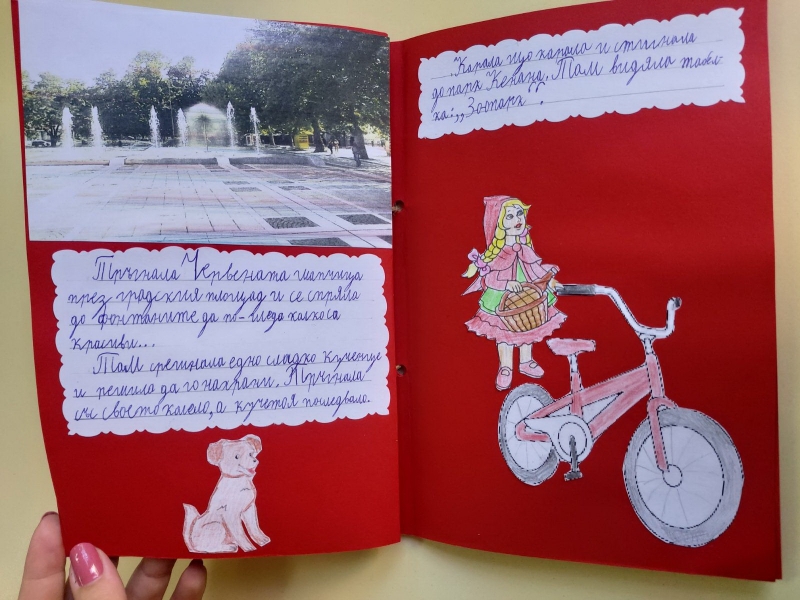 Тръгнала Червената шапчица
през градския площад и се спряла
до фонтаните да погледа колко са
красиви...
Там срещнала едно сладко кученце
и решила да го нахрани. Тръгнала
със своето колело, а кучето я последвало.
Карала що карала и стигнала
до парк Кенана. Там видяла табел-
ка: „Зоопарк".